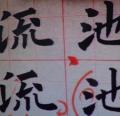 流池
流池